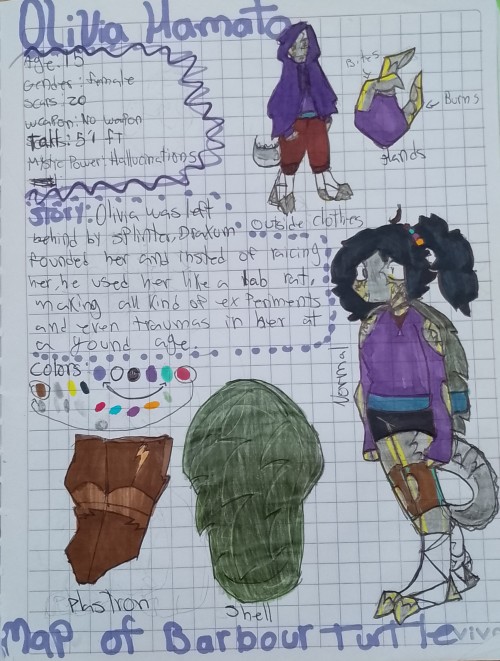 Olivia Hamato
Age: 15
Gender: female
Scars: 20
weapon: No wapon
Talls: 5'1 ft
Mystic Power: Hallucinations
Story: Olivia was left
behind by splinter, Draxum
founded her and insted of raicing
her, he used her like a lab rat,
making all kind of experiments
and even traumas in her at
a yound age.
colors:
Bites
Burns
Hands
outside clothes
Normal
Plastron
Shell
Map of Barbour turtle
viva